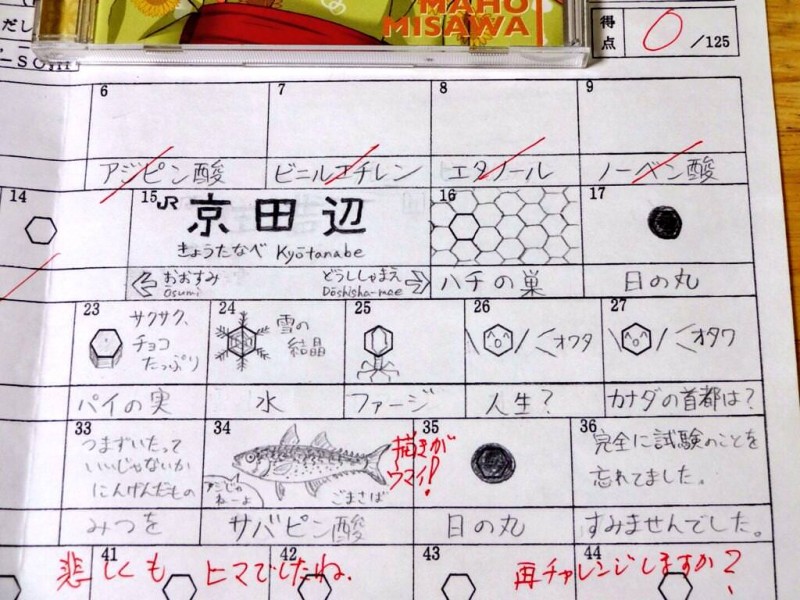 MAHO
MISAWA
得点
0 /125
6
7
8
9
アジピン酸
ビニルエチレン
エタノール
ノーベン酸
14
15
16
17
JR 京田辺
きょうたなべ Kyōtanabe
おおすみ
Ōsumi
どうししゃまえ
Dōshisha-mae
ハチの巣
日の丸
23
24
25
26
27
サクサク、
チョコ
たっぷり
雪の
結晶
オワタ
オタワ
パイの実
水
ファージ
人生?
カナダの首都は?
33
34
35
36
つまずいたって
いいじゃないか
にんげんだもの
アジじゃ
ねーよ
ごまさば
描きが
ウマイ!
完全に試験のことを
忘れてました。
みつを
サバピン酸
日の丸
すみませんでした。
41
42
43
44
悲しくも ヒマでしたね.
再チャレンジしますか?